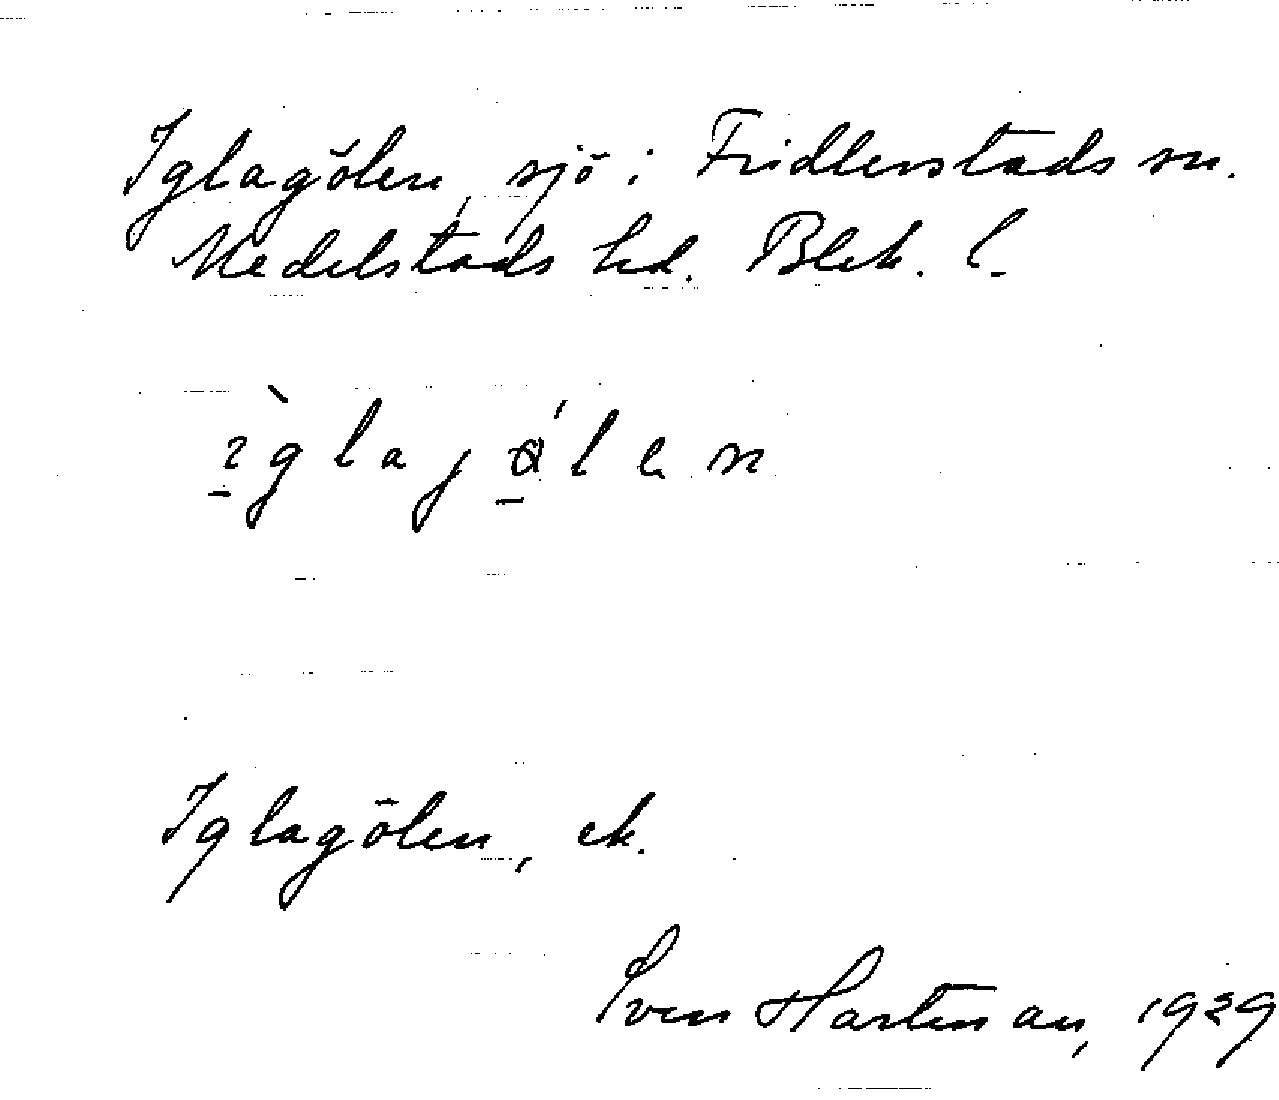 Iglagölen, sjö i Fridlevstads sn.
Medelstads hd. Blek. l.
Iglagölen, ek.
Sven Hartman, 1929